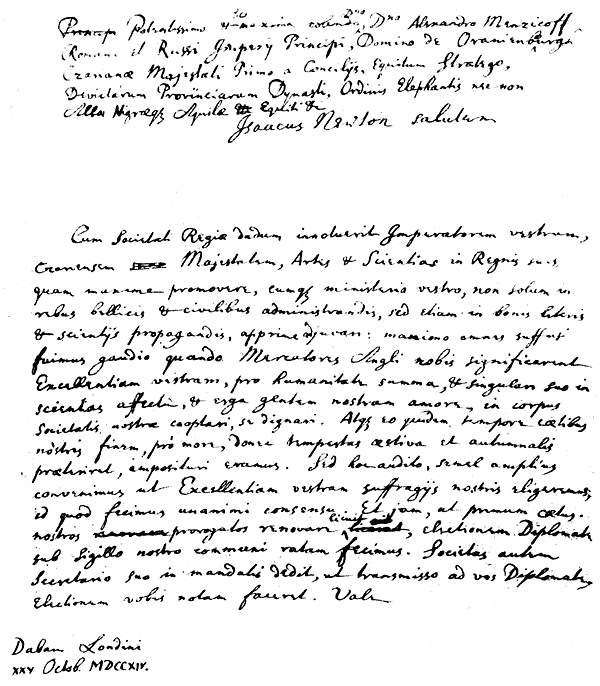 Potentissimo et maxime colendo Dno Dno Alexandro Menzicoff
Romani et Russi Imperij Principi, Domino de Oranienburgh
Czareanæ Majestati Primo a Concilijs, Equitum Stratego,
Devictarum Provinciarum Dynasti, Ordinis Elephantis nec non
Albæ Nigræqꝫ Aquilæ Equiti &
Isaacus Newton salutem
Cum Societati Regiæ dudum innotuerit Imperatorem vestrum,
Majestatem, Artes & Scientias in Regnis suis
quam maxime promovere, eumqꝫ ministerio vestro, non solum in
rebus bellicis & civilibus administrandis, sed etiam in bonis literis
& scientijs propagandis, apprime adjuvari: maximo omnes suffusi
fuimus gaudio quando Mercatores Angli nobis significarent
Excellentiam vestram, pro humanitate summa, & singulari suo in
scientias affectu, & erga gentem nostram amore, in corpus
Societatis nostræ cooptari, se dignari. Atqꝫ eo quidem tempore cœtibus
nostris finem, pro more, donec tempestas æstiva et autumnalis
præteriret, imposituri eramus. Sed hoc audito, semel amplius
convenimus ut Excellentiam vestram suffragijs nostris eligeremus;
id quod fecimus unanimi consensu. Et jam, ut primum cœtus
nostros prorogatos renovare licuit, electionem Diplomate
sub Sigillo nostro communi ratam fecimus. Societas autem
Secretario suo in mandatis dedit, ut transmisso ad vos Diplomate,
electionem vobis notam faceret. Vale
Dabam Londini
xxv Octob. MDCCXIV.